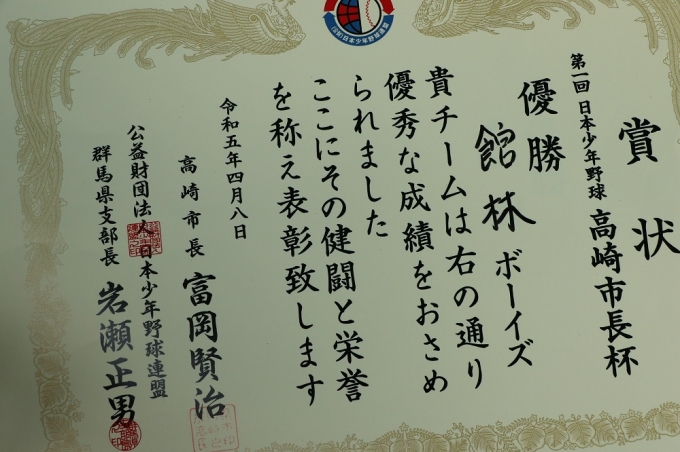 賞状
第一回 日本少年野球 高崎市長杯
優勝
館林ボーイズ
貴チームは右の通り
優秀な成績をおさめ
られました
ここにその健闘と栄誉
を称え表彰致します
令和五年四月八日
高崎市長 富岡賢治
公益財団法人日本少年野球連盟
群馬県支部長 岩瀬正男